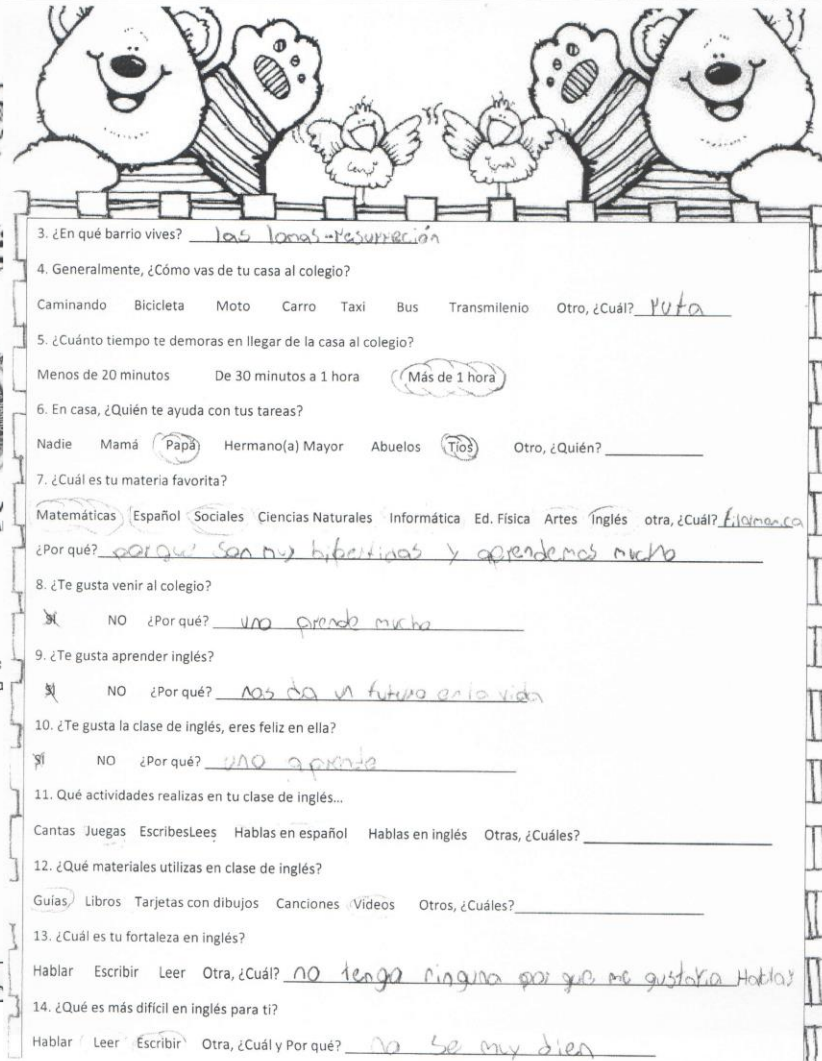 3. ¿En qué barrio vives? las lomas-resurreción
4. Generalmente, ¿Cómo vas de tu casa al colegio?
Caminando Bicicleta Moto Carro Taxi Bus Transmilenio Otro, ¿Cuál? ruta
5. ¿Cuánto tiempo te demoras en llegar de la casa al colegio?
Menos de 20 minutos De 30 minutos a 1 hora Más de 1 hora
6. En casa, ¿Quién te ayuda con tus tareas?
Nadie Mamá Papá Hermano(a) Mayor Abuelos Tíos Otro, ¿Quién?
7. ¿Cuál es tu materia favorita?
Matemáticas Español Sociales Ciencias Naturales Informática Ed. Física Artes Inglés otra, ¿Cuál?
¿Por qué? porque son muy y aprendemos mucho
8. ¿Te gusta venir al colegio?
SI NO ¿Por qué? uno prende mucho
9. ¿Te gusta aprender inglés?
SI NO ¿Por qué? nos da un futuro en la vida
10. ¿Te gusta la clase de inglés, eres feliz en ella?
SI NO ¿Por qué? uno aprende
11. Qué actividades realizas en tu clase de inglés...
Cantas Juegas EscribesLees Hablas en español Hablas en inglés Otras, ¿Cuáles?
12. ¿Qué materiales utilizas en clase de inglés?
Guías Libros Tarjetas con dibujos Canciones Videos Otros, ¿Cuáles?
13. ¿Cuál es tu fortaleza en inglés?
Hablar Escribir Leer Otra, ¿Cuál? no tengo ninguna por que me gustaria Hablar
14. ¿Qué es más difícil en inglés para ti?
Hablar Leer Escribir Otra, ¿Cuál y Por qué? no se muy bien